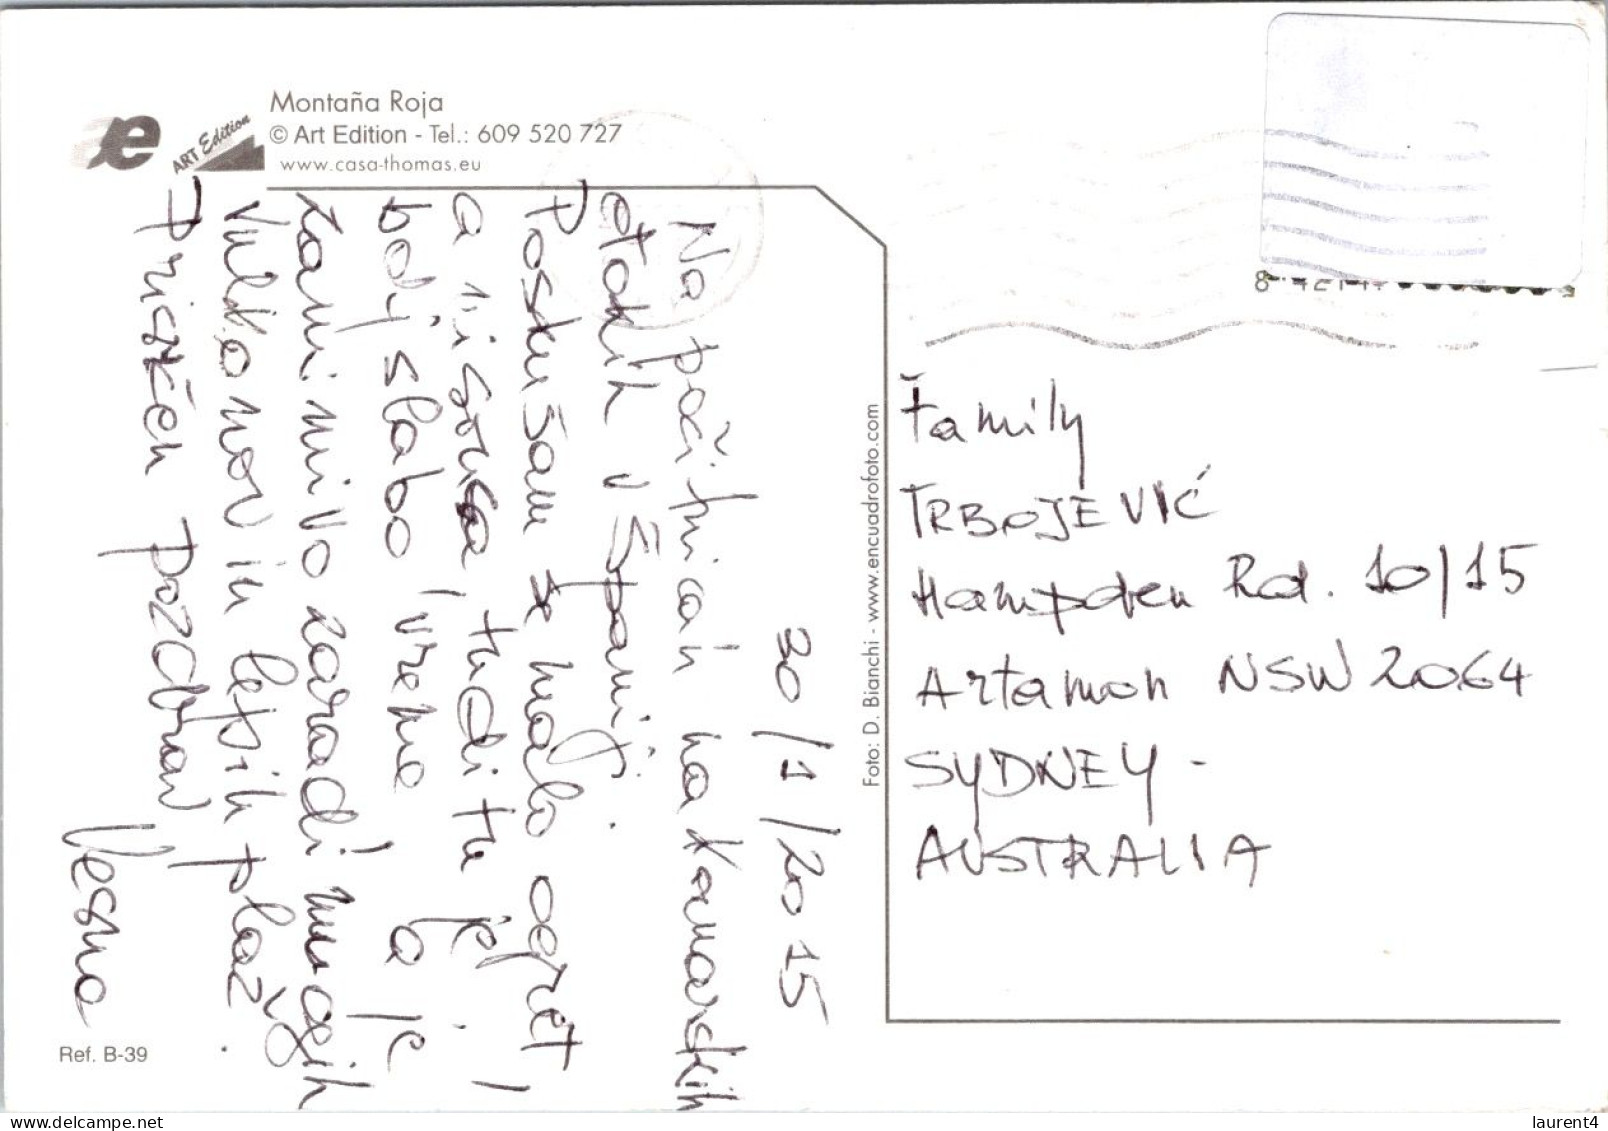 Montaña Roja
© Art Edition - Tel.: 609 520 727
www.casa-thomas.eu
ART Edition
30/1/2015
Na počitnicah na Kanarskih
otokih v Španiji.
Poskušam se malo ogret
a ni sonca, tudi tu je
bolj slabo vreme, a je
zanimivo zaradi mnogih
vulkanov in lepših plaž.
Prisrčen pozdrav
Vesna
Foto: D. Bianchi - www.encuadrofoto.com
Family
TRBOJEVIĆ
Hampden Rd. 10/15
Artamon NSW 2064
SYDNEY -
AUSTRALIA
Ref. B-39
www.delcampe.net
laurent4